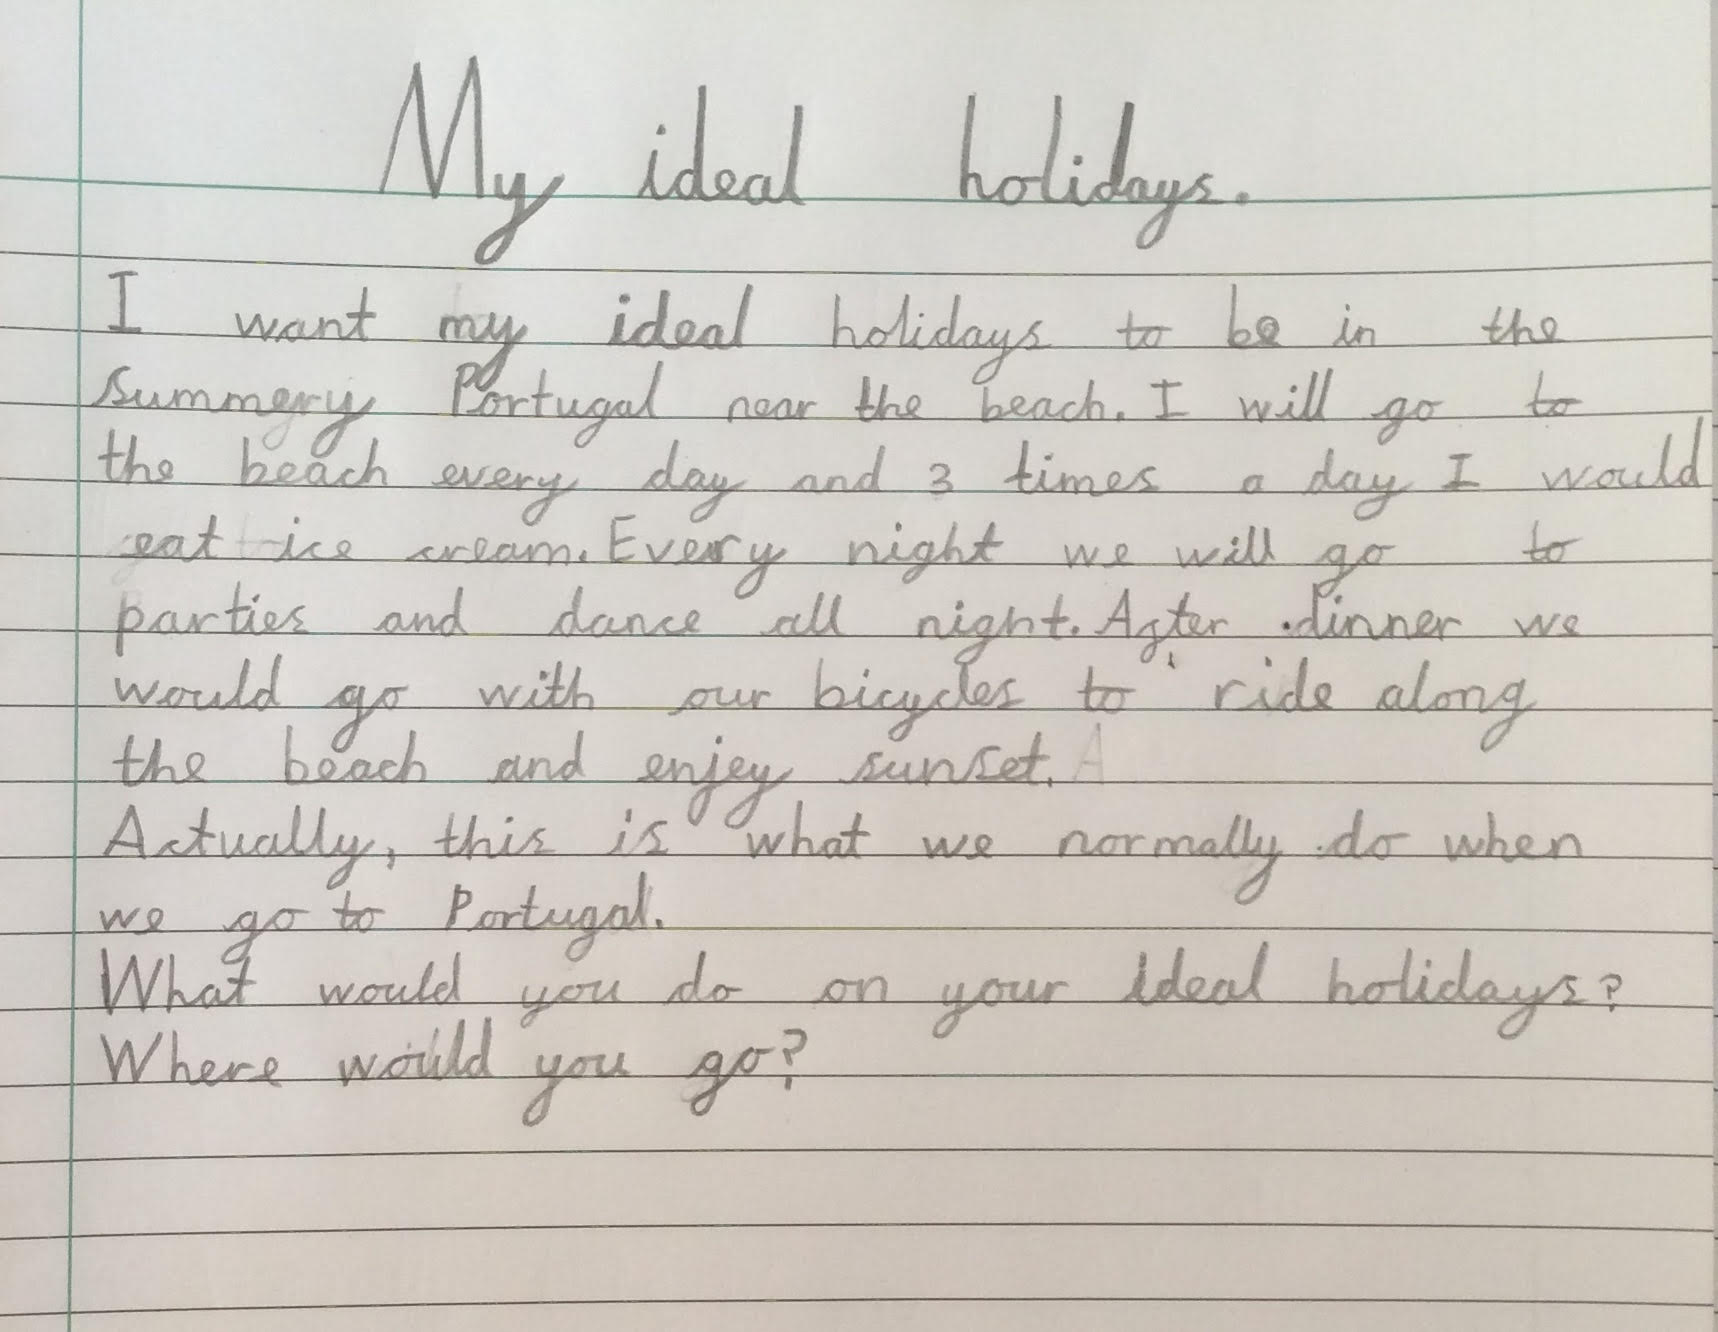 My ideal holidays.
I want my ideal holidays to be in the
summery Portugal near the beach. I will go to
the beach every day and 3 times a day I would
eat ice cream. Every night we will go to
parties and dance all night. After dinner we
would go with our bicycles to ride along
the beach and enjey sunset. A
Actually, this is what we normally do when
we go to Portugal.
What would you do on your ideal holidays?
Where would you go?